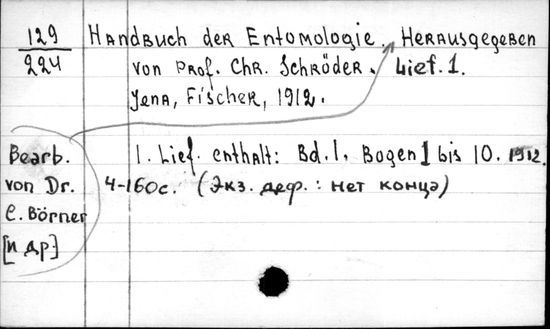 129
224
Handbuch der Entomologie. Herausgegeben
von Prof. Chr. Schröder. Lief. 1.
Jena, Fischer, 1912.
Bearb.
von Dr.
C. Börner
[и др]
1. Lief. enthält: Bd. 1, Bogen 1 bis 10. 1912.
4-160с. (Экз. деф.: нет конца)